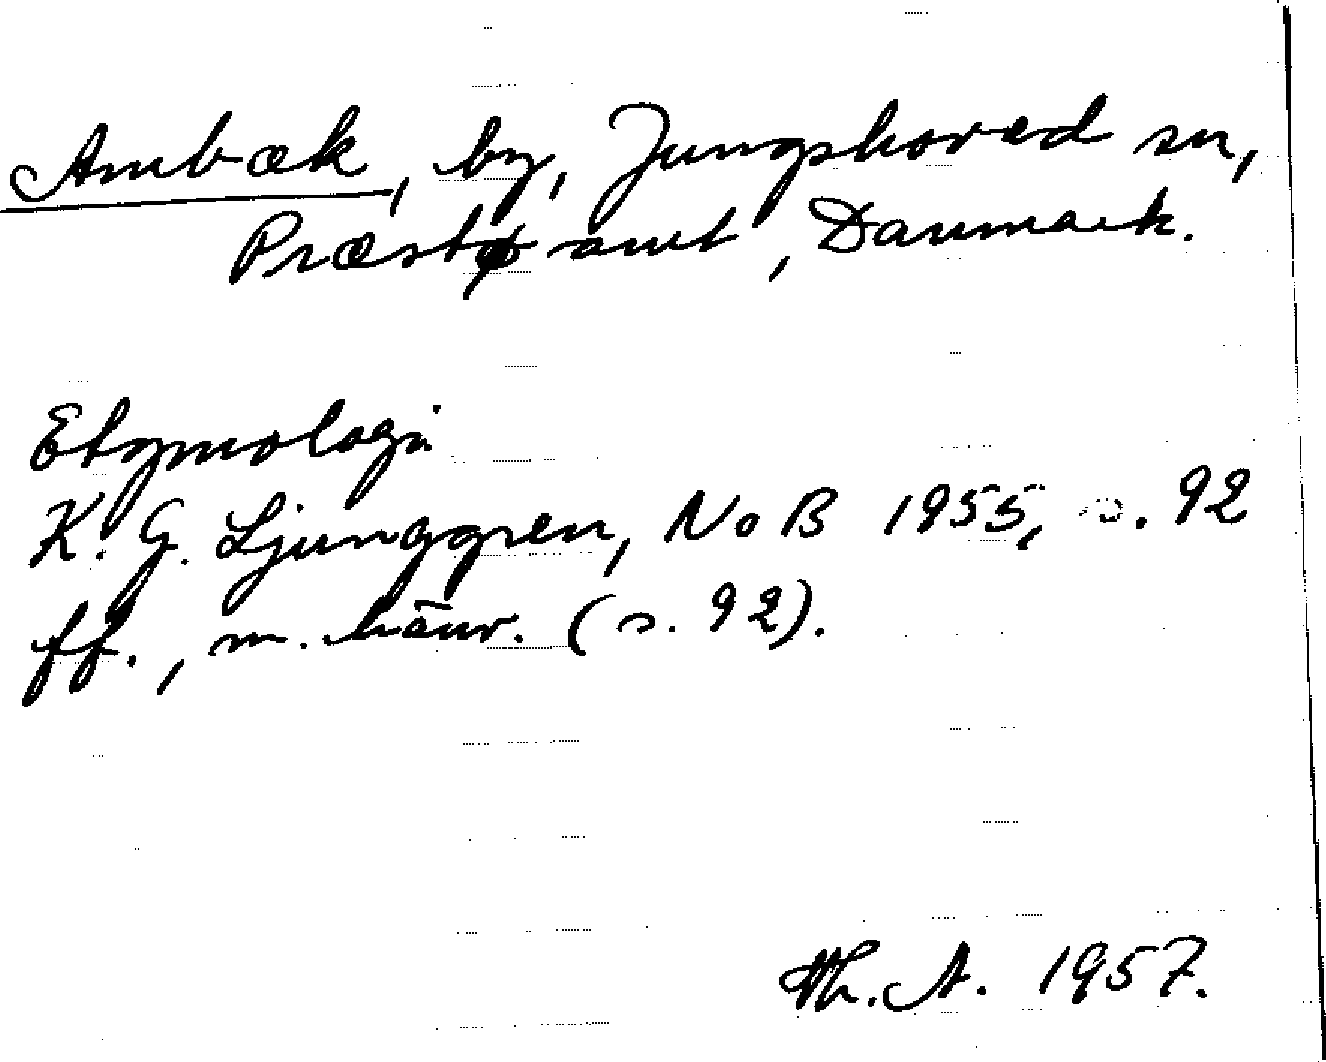 Ambæk, by, Jungshoved sn,
Præstø amt, Danmark.
Etymologi
K. G. Ljunggren, NoB 1955, s. 92
ff., m. hänv. (s. 92).
Th. A. 1957.